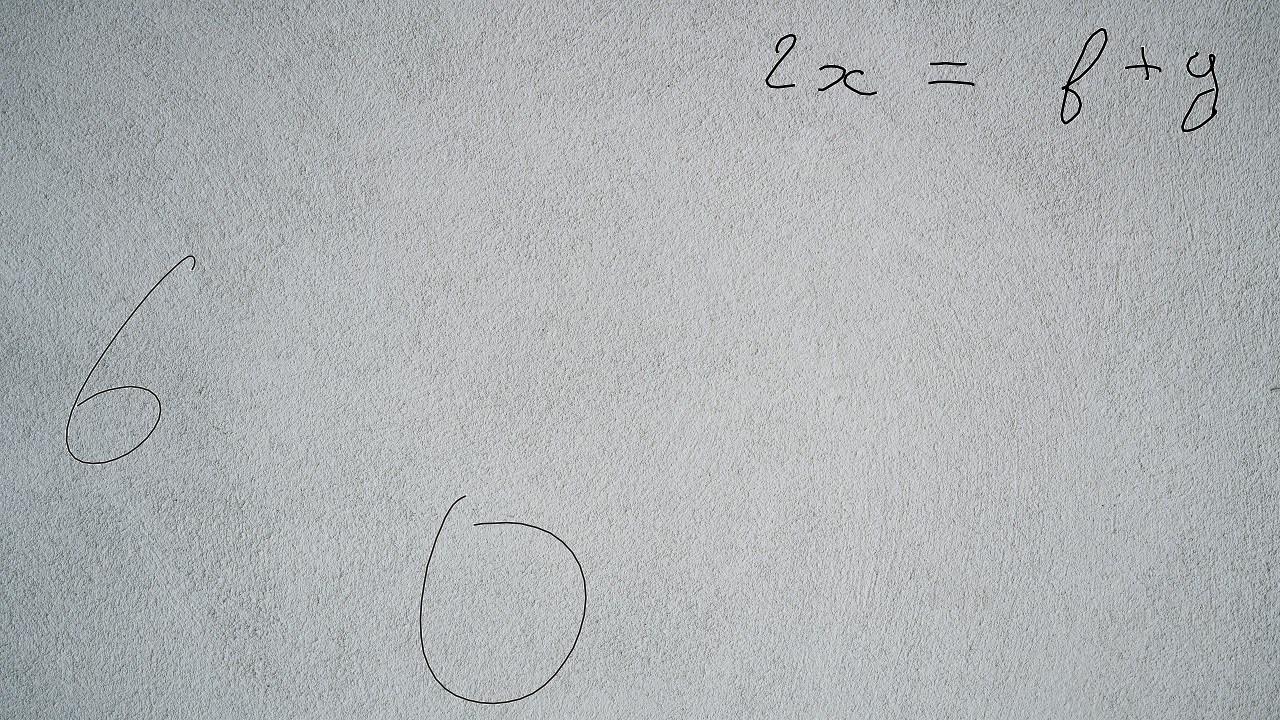 2x = f + y
6
0